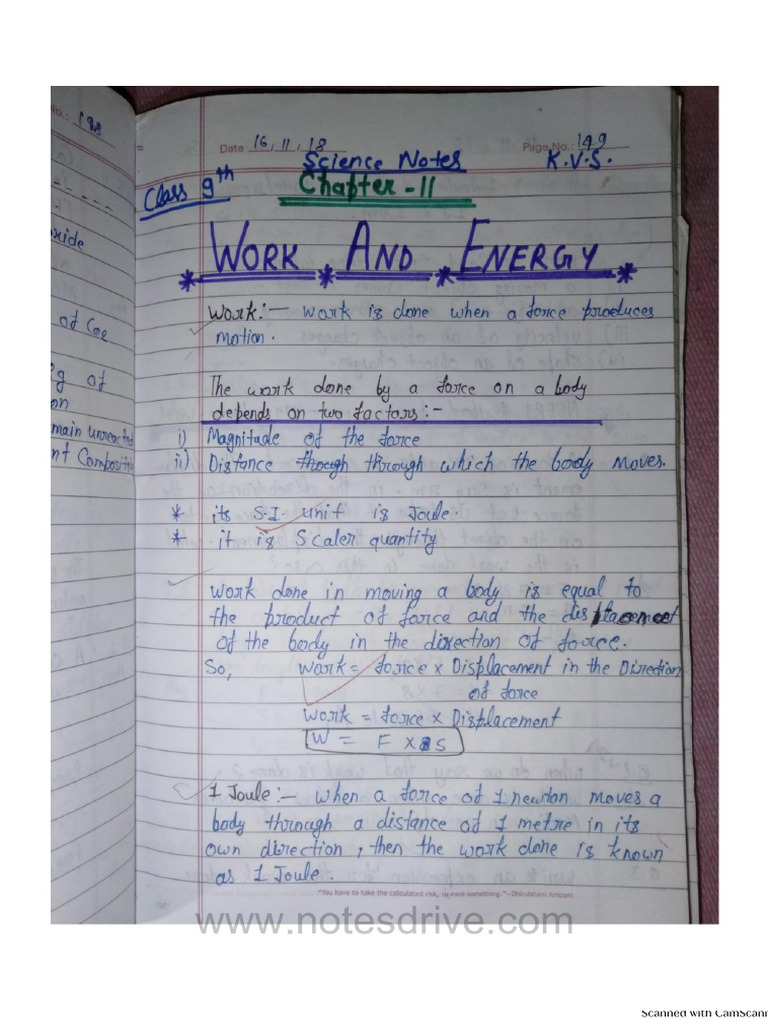 No.: 188
Date 16, 11, 18
Page No.: 149
Science Notes
K.V.S.
Class 9th
Chapter -11
* WORK * AND * ENERGY *
xide
of
g of
on
main unreacted
nt Compositio
Work:- Work is done when a force produces
motion.
The work done by a force on a body
depends on two factors:-
i) Magnitude of the force
ii) Distance though through which the body moves.
* its S.I. unit is Joule.
* it is Scaler quantity
Work done in moving a body is equal to
the product of force and the displacement
of the body in the direction of force.
So, Work = force × Displacement in the Direction
of force
Work = force × Displacement
W = F × S
1 Joule:- When a force of 1 newton moves a
body through a distance of 1 metre in its
own direction, then the work done is known
as 1 Joule.
"You have to take the calculated risk, to earn something."—Dhirubhai Ambani
www.notesdrive.com
Scanned with CamScann